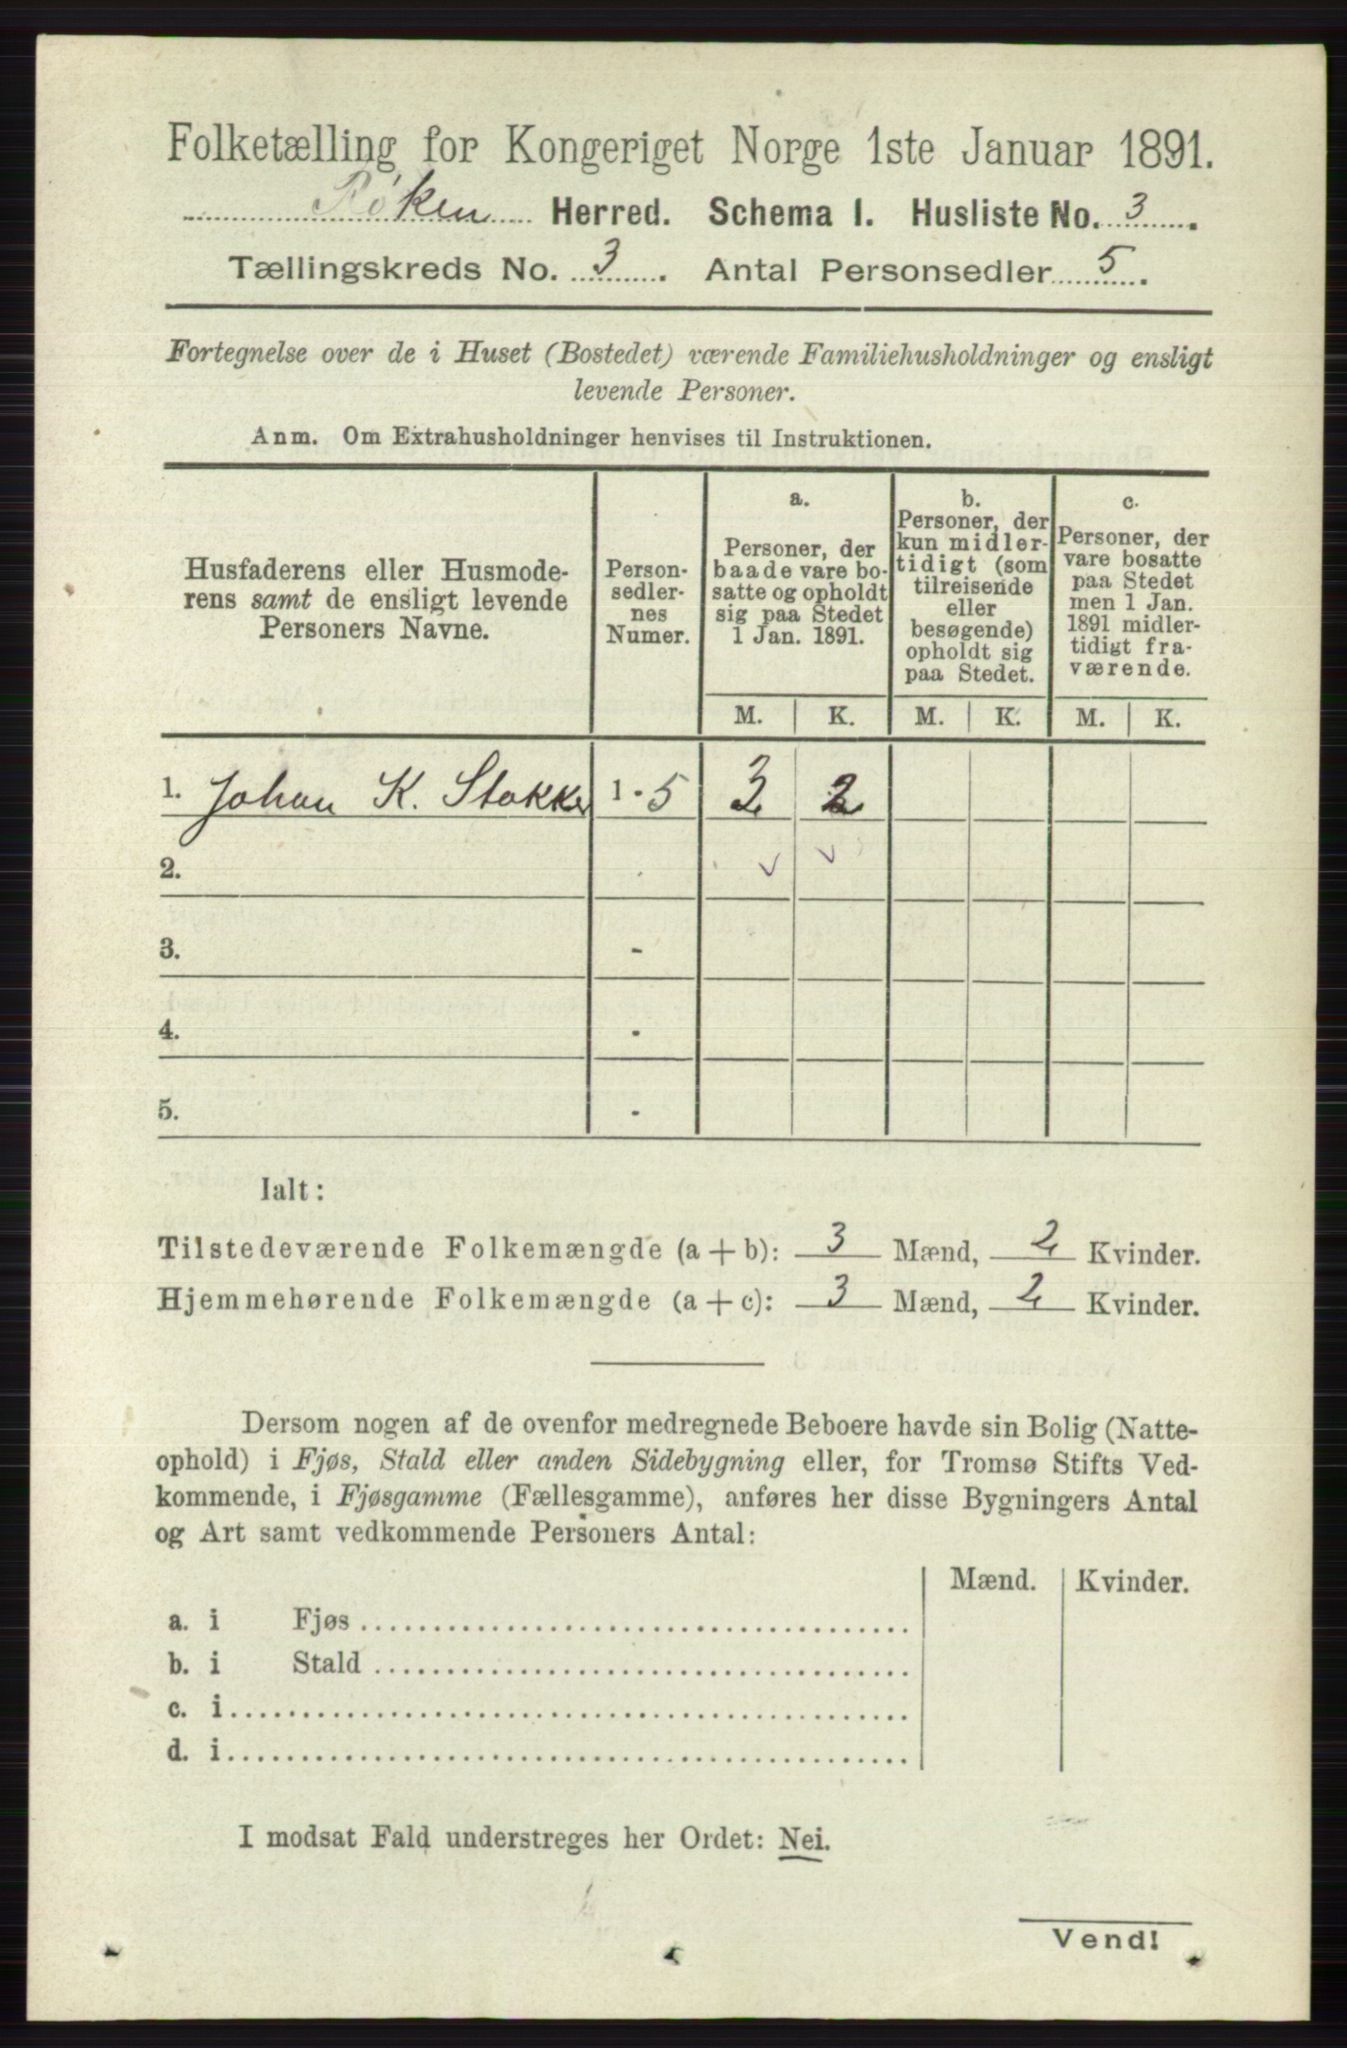 Folketælling for Kongeriget Norge 1ste Januar 1891.
Røken Herred. Schema I. Husliste No. 3.
Tællingskreds No. 3. Antal Personsedler 5.
Fortegnelse over de i Huset (Bostedet) værende Familiehusholdninger og ensligt
levende Personer.
Anm. Om Extrahusholdninger henvises til Instruktionen.
Husfaderens eller Husmode-
rens samt de ensligt levende
Personers Navne.
Person-
sedler-
nes
Numer.
a.
Personer, der
baade vare bo-
satte og opholdt
sig paa Stedet
1 Jan. 1891.
b.
Personer, der
kun midler-
tidigt (som
tilreisende
eller
besøgende)
opholdt sig
paa Stedet.
c.
Personer, der
vare bosatte
paa Stedet
men 1 Jan.
1891 midler-
tidigt fra-
værende.
M. K. M. K. M. K.
1. Johan K. Stokke 1 - 5 3 2
2.
3. -
4. -
5. -
Ialt:
Tilstedeværende Folkemængde (a + b): 3 Mænd, 2 Kvinder.
Hjemmehørende Folkemængde (a + c): 3 Mænd, 2 Kvinder.
Dersom nogen af de ovenfor medregnede Beboere havde sin Bolig (Natte-
ophold) i Fjøs, Stald eller anden Sidebygning eller, for Tromsø Stifts Ved-
kommende, i Fjøsgamme (Fællesgamme), anføres her disse Bygningers Antal
og Art samt vedkommende Personers Antal:
Mænd. Kvinder.
a. i Fjøs
b. i Stald
c. i
d. i
I modsat Fald understreges her Ordet: Nei.
Vend!